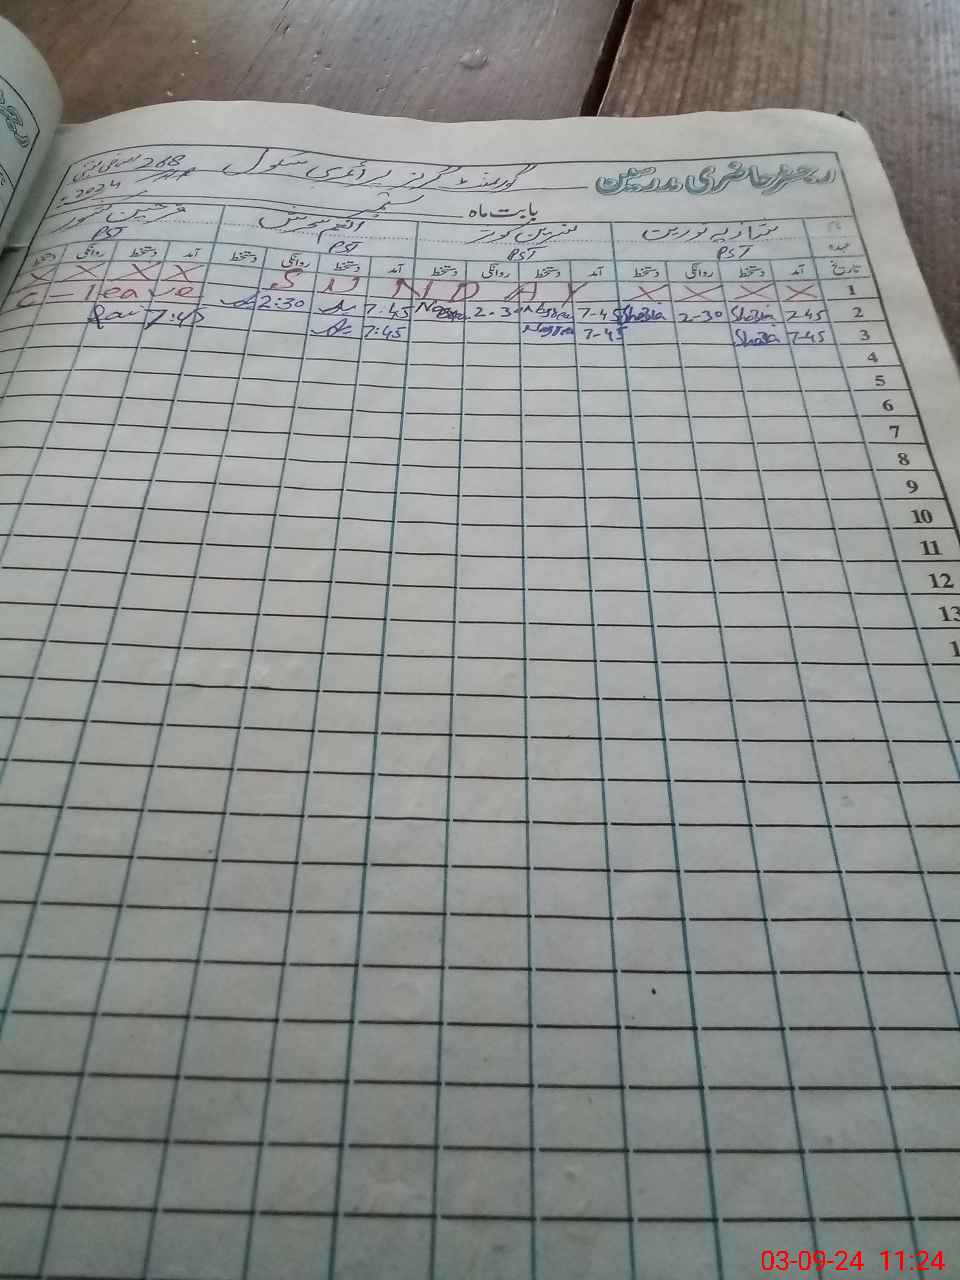 رجسٹر حاضری مدرسین گورنمنٹ گرلز پرائمری سکول 268
بابت ماہ ستمبر 2024
شازیہ نورین نسرین کوثر
PST PST PST PST
تاریخ آمد دستخط روانگی دستخط آمد دستخط روانگی دستخط آمد دستخط روانگی دستخط آمد دستخط روانگی دستخط
1 X X X X S U N D A Y X X X X
2 7-45 Shazia 2-30 Shazia 7-45 2-30 7:45 2:30 C-leave
3 7-45 Shazia 7-45 7:45 7:45
4
5
6
7
8
9
10
11
12
13
1
03-09-24 11:24